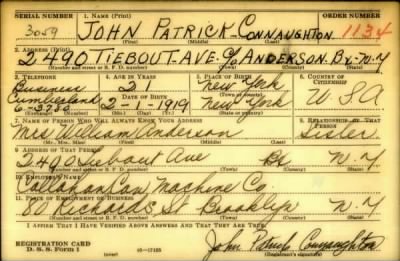 SERIAL NUMBER 1. NAME (Print) ORDER NUMBER
3059 JOHN PATRICK CONNAUGHTON 1134
(First) (Middle) (Last)
2. ADDRESS (Print)
2490 TIEBOUT-AVE. C/O ANDERSON. Bx-N.Y
(Number and street or R. F. D. number) (Town) (County) (State)
3. TELEPHONE 4. AGE IN YEARS 5. PLACE OF BIRTH 6. COUNTRY OF CITIZENSHIP
Business New York
Cumberland DATE OF BIRTH (Town or county)
6-3780 2-1-1919 New York U S A
(Mo.) (Day) (Yr.) (State or country)
7. NAME OF PERSON WHO WILL ALWAYS KNOW YOUR ADDRESS 8. RELATIONSHIP OF THAT PERSON
Mrs William Anderson Sister
(Mr., Mrs., Miss) (First) (Middle) (Last)
9. ADDRESS OF THAT PERSON
2490 Tiebout Ave Bx N. Y
(Number and street or R. F. D. number) (Town) (County) (State)
10. EMPLOYER'S NAME
Callahan Can Machine Co.
11. PLACE OF EMPLOYMENT OR BUSINESS
80 Richards St Brooklyn N. Y
(Number and street or R. F. D. number) (Town) (County) (State)
I AFFIRM THAT I HAVE VERIFIED ABOVE ANSWERS AND THAT THEY ARE TRUE.
REGISTRATION CARD
D. S. S. Form 1 (over) 16-17105 John Patrick Connaughton